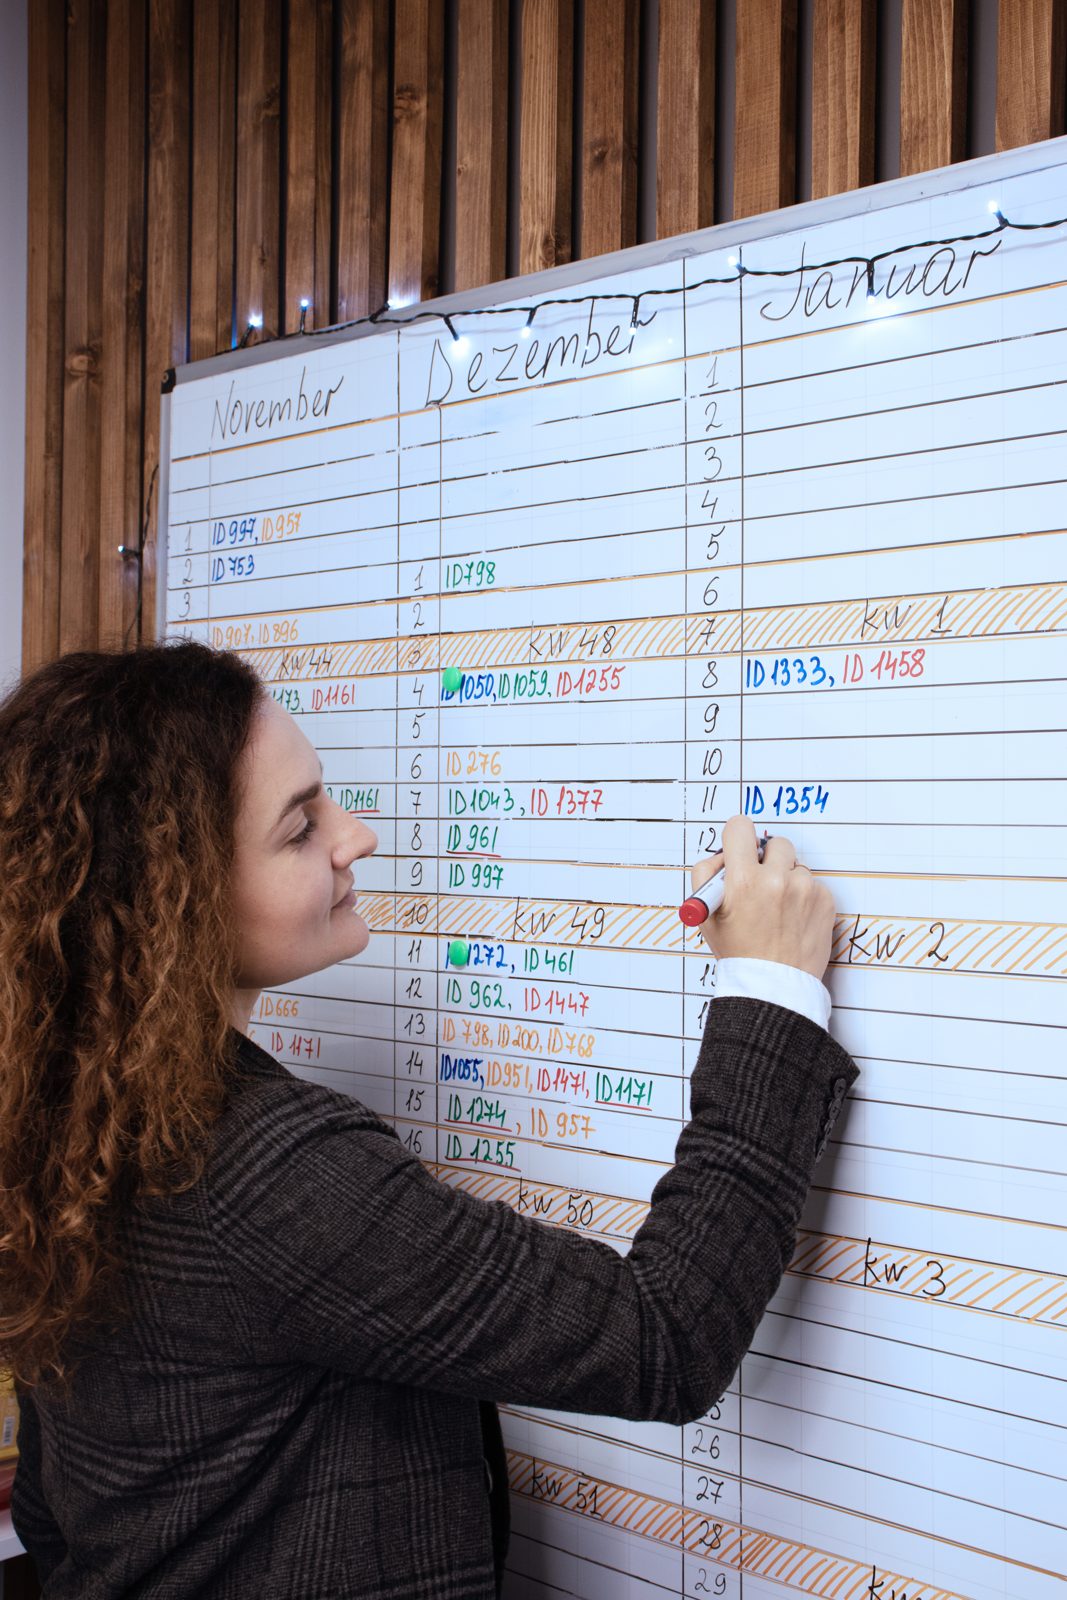 November
Dezember
Januar
1 ID 997, ID 957
2 ID 753
3
ID 907, ID 896
KW 44
173, ID 1161
ID1161
ID666
ID 1171
1 ID798
2
3 KW 48
4 ID1050, ID1059, ID1255
5
6 ID 276
7 ID1043, ID 1377
8 ID 961
9 ID 997
10 KW 49
11 1272, ID 461
12 ID 962, ID 1447
13 ID 798, ID 200, ID 768
14 ID1055, ID951, ID1471, ID1171
15 ID 1274, ID 957
16 ID 1255
KW 50
KW 51
1
2
3
4
5
6
7 KW 1
8 ID 1333, ID 1458
9
10
11 ID 1354
12
KW 2
KW 3
26
27
28
29